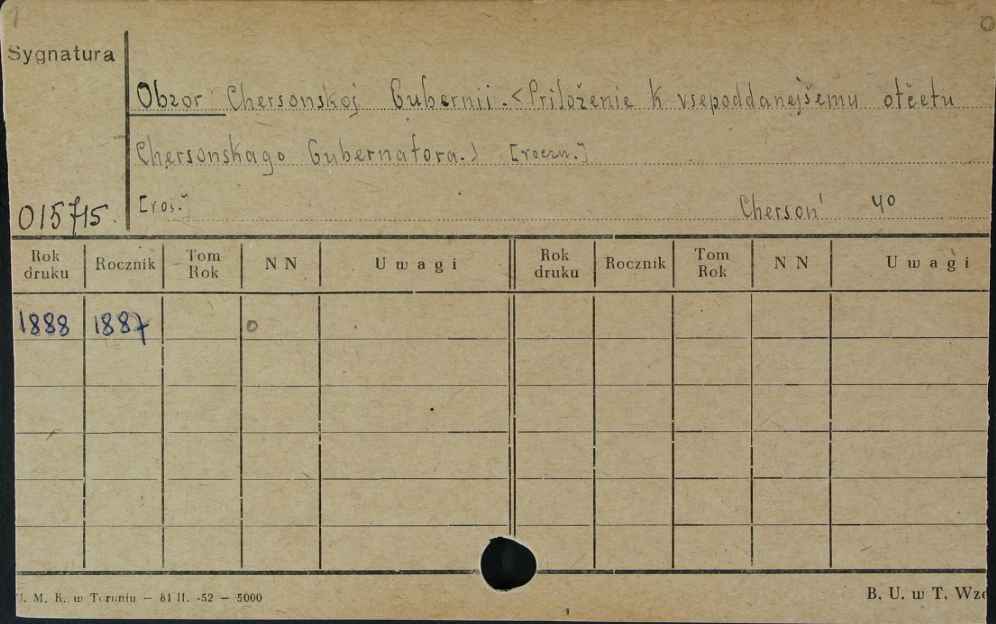 Sygnatura
Obzor Chersonskoj Gubernii. <Priloženie k vsepoddanejšemu otčetu
Chersonskago Gubernatora.> [roczn.]
015715. [ros.] Cherson' 4o
Rok druku Rocznik Tom Rok NN Uwagi Rok druku Rocznik Tom Rok NN Uwagi
1888 1887 0
M. K. w Toruniu — 81 II. -52 — 5000 B. U. w T.